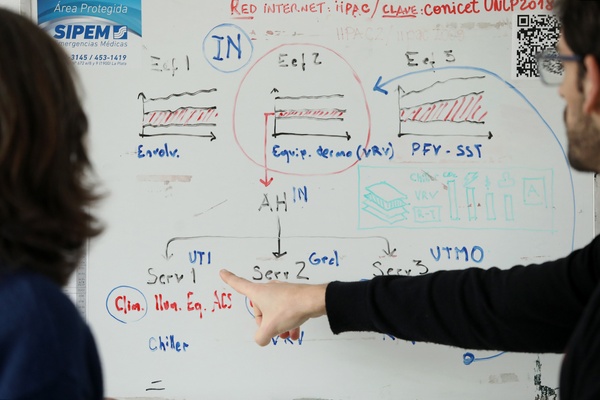 Área Protegida
SIPEM
Emergencias Médicas
RED INTERNET: iipac / CLAVE: conicet UNLP2018
IN
Eef 1
Eef 2
Eef 3
Envolv.
Equip. dermo (VRV)
PFV - SST
VRV
R-T
A
A.H
IN
UTI
Gral
UTMO
Serv 1
Serv 2
Serv 3
Clim. Ilum. Eq. ACS
Chiller
VRV